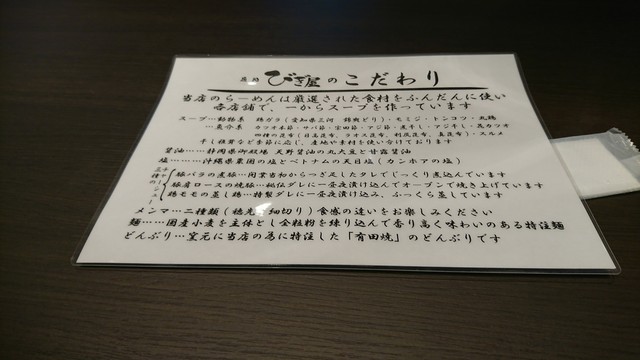 びぎ屋のこだわり
当店のらーめんは厳選された食材をふんだんに使い
各店舗で、一からスープを作っています
スープ…動物系 鶏ガラ(愛知県三河 錦爽どり)・モミジ・トンコツ・丸鶏
…魚介系 カツオ本節・サバ節・宗田節・アジ節・煮干し・アジ干し・昆カツオ
四種の昆布(日高昆布、ラオス昆布、利尻昆布、真昆布)・スルメ
干し椎茸など季節に応じ、産地や素材を使い分けております
醤油……静岡県御殿場 天野醤油の丸大豆と甘露醤油
塩………沖縄県粟国の塩とベトナムの天日塩(カンホアの塩)
三種のチャーシュー
豚バラの煮豚…開業当初からつぎ足したタレでじっくり煮込んでいます
豚肩ロースの焼豚…秘伝ダレに一昼夜漬け込んでオーブンで焼き上げています
鶏モモの蒸し鶏…特製ダレに一昼夜漬け込み、ふっくら蒸しています
メンマ…二種類(穂先 細切り)食感の違いをお楽しみください
麺……国産小麦を主体とし全粒粉を練り込んで香り高く味わいのある特注麺
どんぶり…窯元に当店の為に特注した「有田焼」のどんぶりです